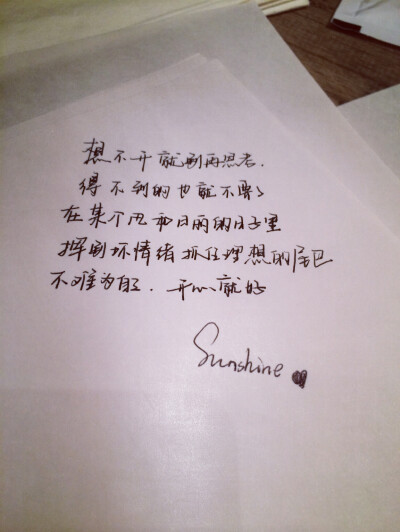 想不开就别再思考.
得不到的也就不要了
在某个风和日丽的日子里
挥别坏情绪抓住理想的尾巴
不难为自己.开心就好
Sunshine